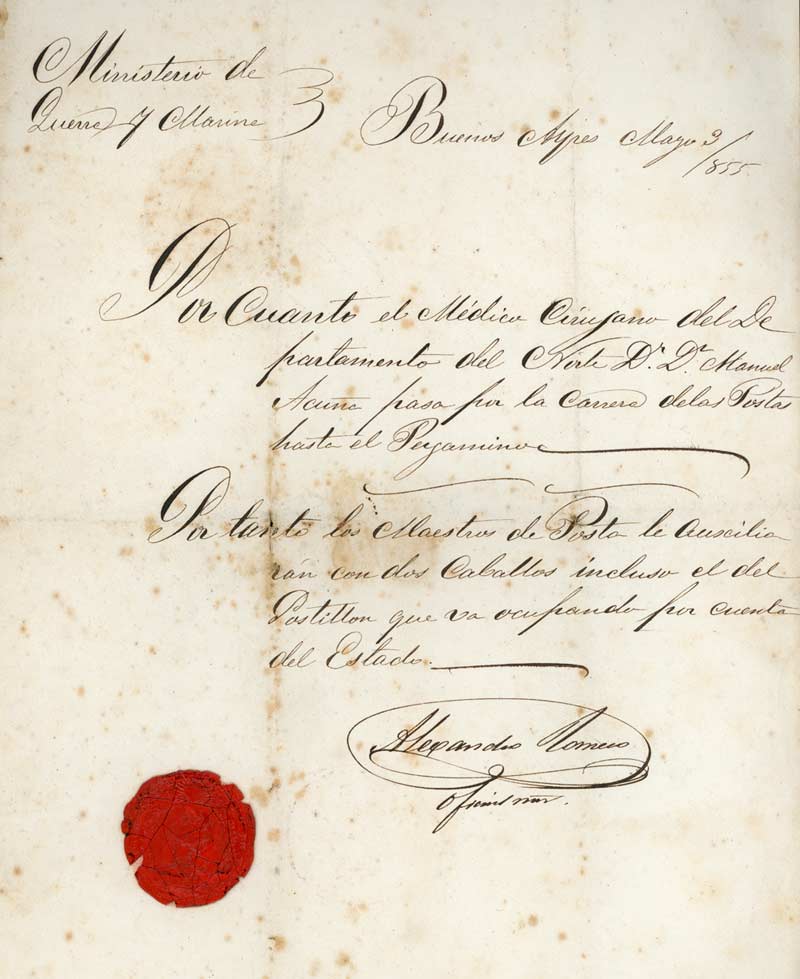 Ministerio de
Guerra y Marina
Buenos Ayres Mayo 3/855.
Por Cuanto el Médico Cirujano del De
partamento del Norte Dr. Dn. Manuel
Acuña pasa por la Carrera delas Postas
hasta el Pergamino
Por tanto los Maestros de Posta le Auscilia
rán con dos Caballos incluso el del
Postillon que va ocupando por cuenta
del Estado.
Alexandro Romero